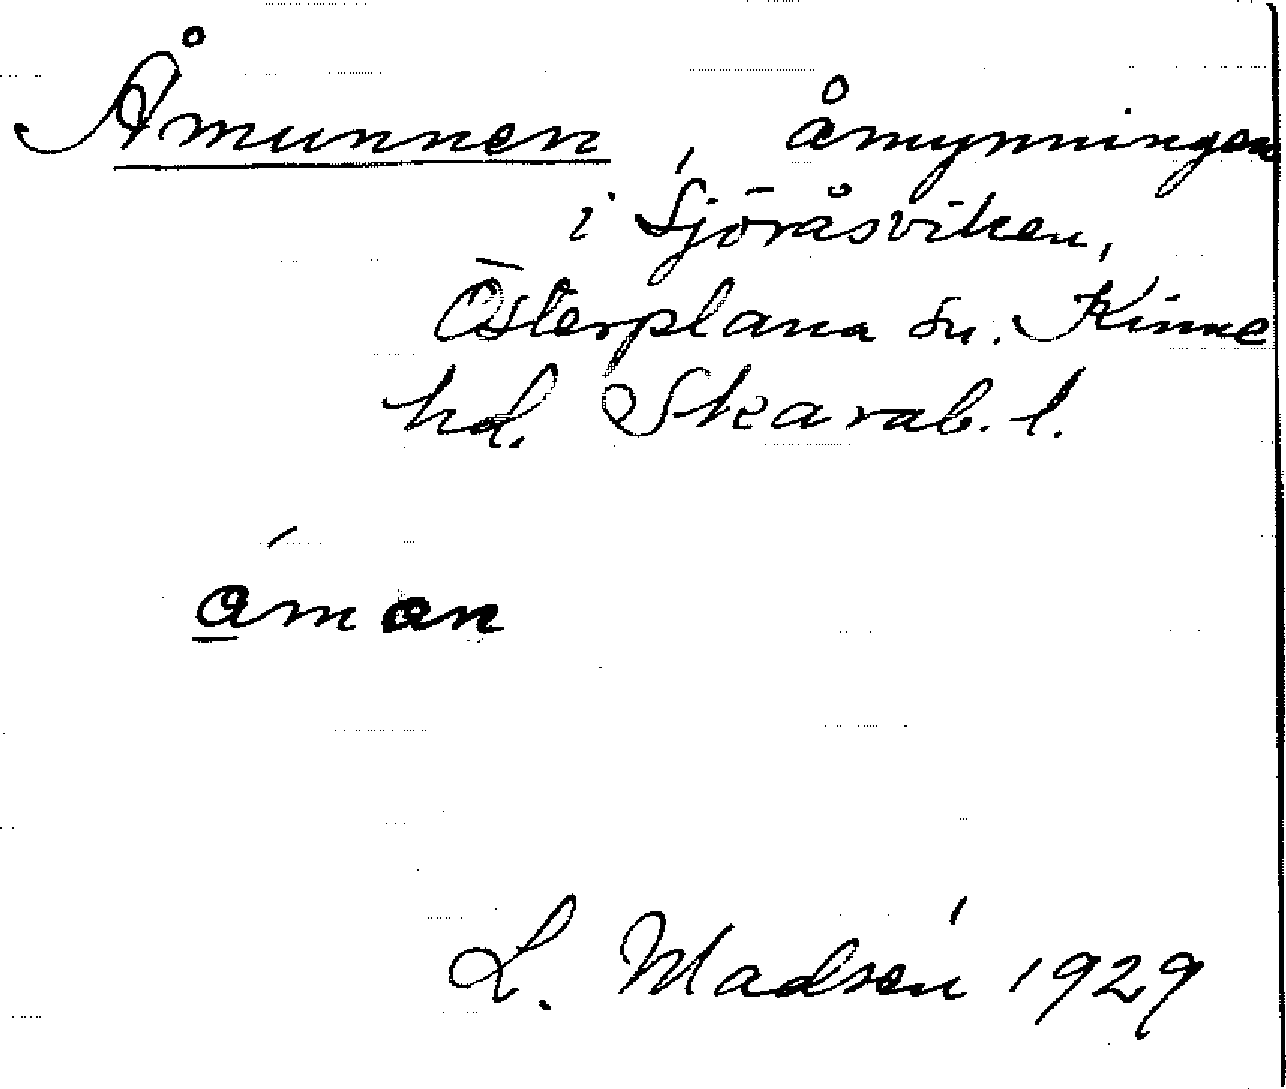 Åmunnen, åmynningen
i Sjöråsviken,
Österplana sn. Kinne
hd. Skarab. l.
L. Madsén 1929